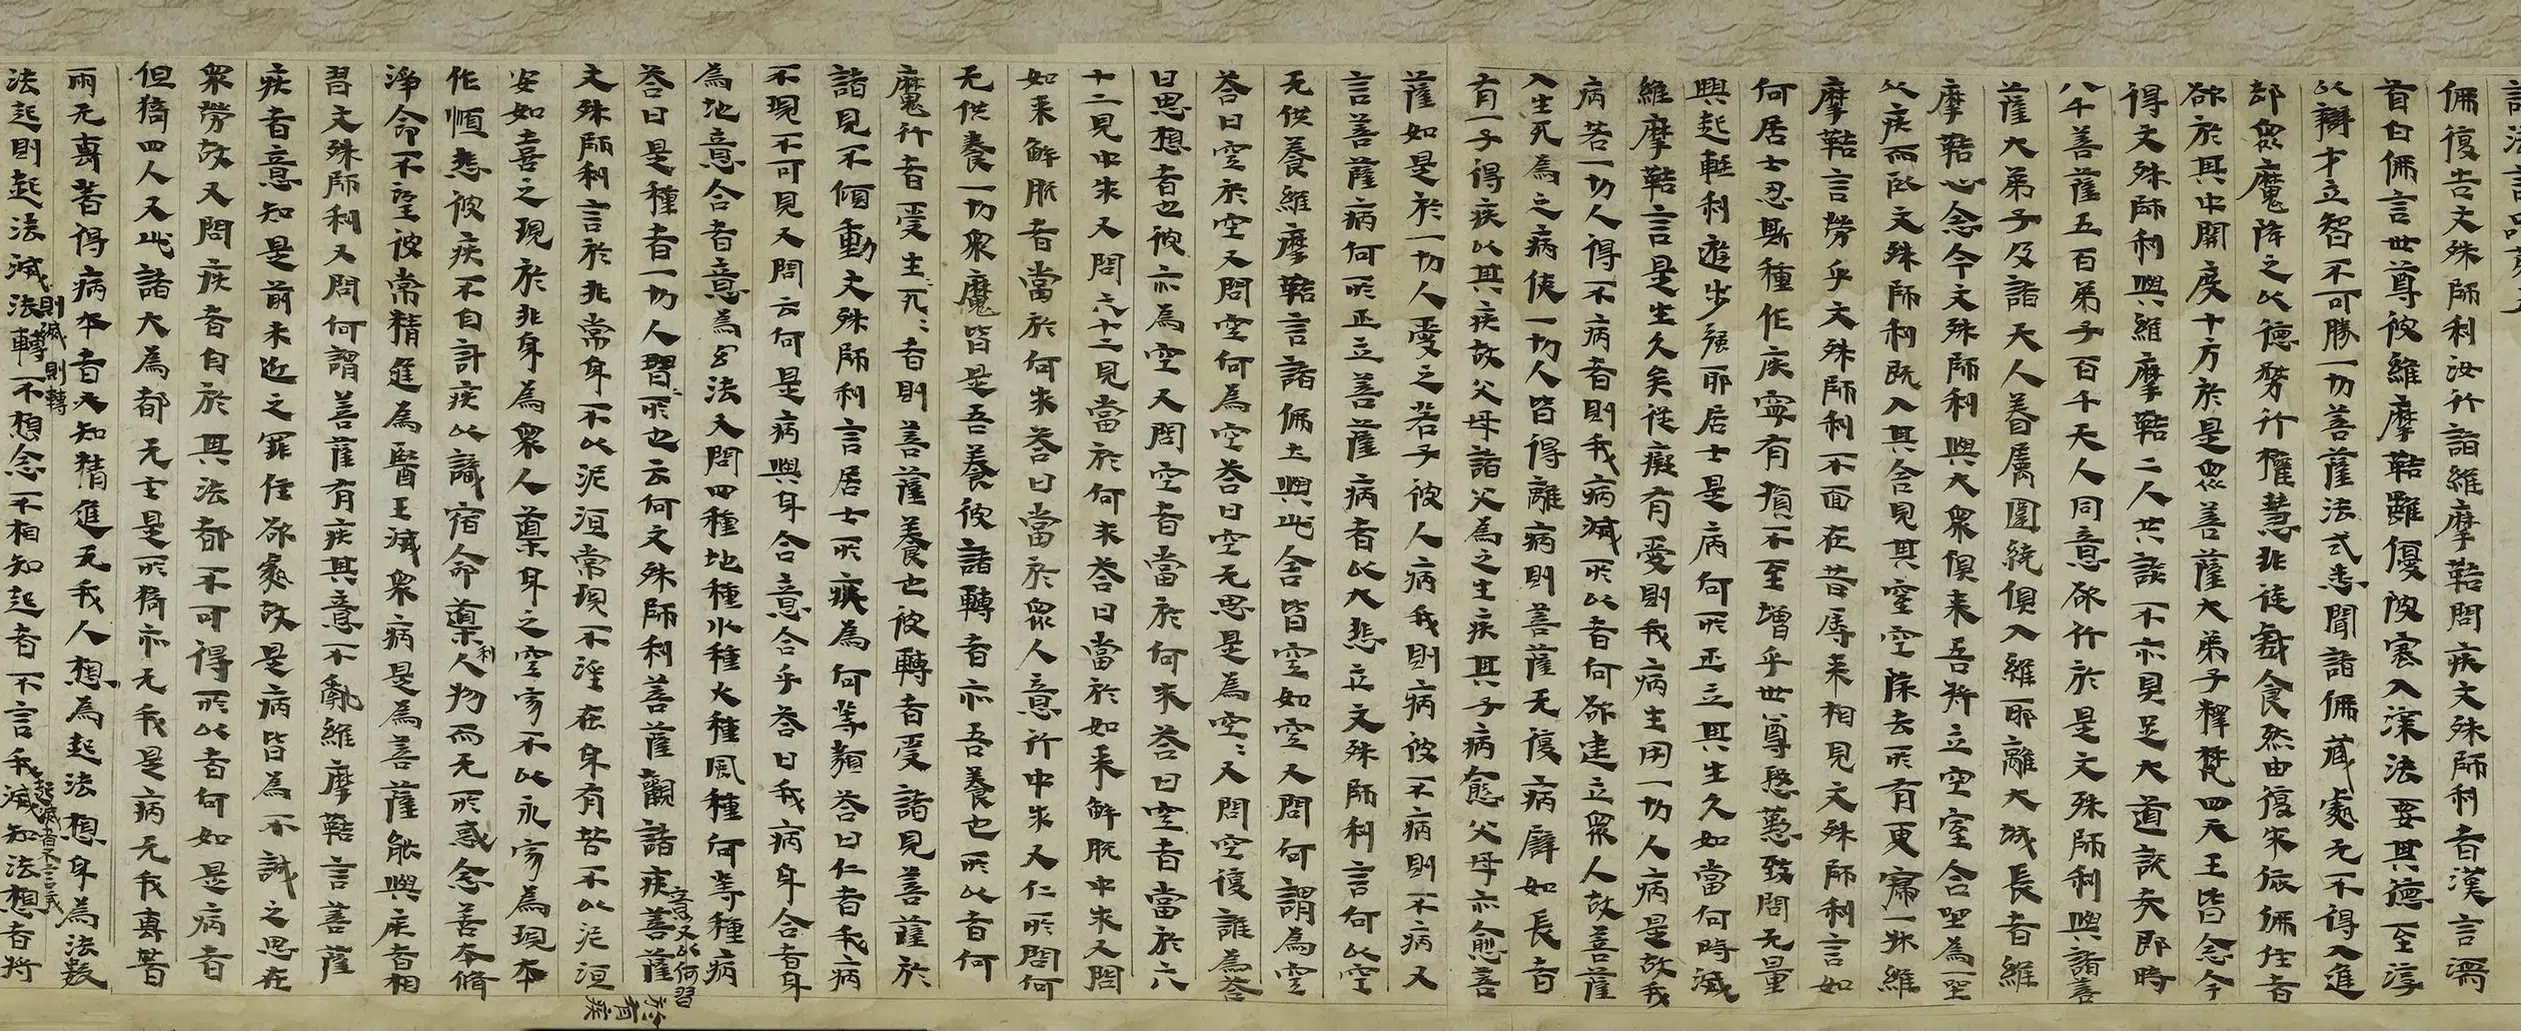 諸法言品第五
佛復告文殊師利汝行詣維摩鞊問疾文殊師利者漢言濡
首白佛言世尊彼維摩鞊雖優陂塞入深法要其德至淳
以辯才立智不可勝一切菩薩法式悉聞諸佛藏處无不得入進
郤衆魔降之以德務行權慧非徒戲食然由復求依佛住者
欲於其中開度十方於是衆菩薩大弟子釋梵四天王皆念今
得文殊師利與維摩鞊二人共談不亦具足大道說矣即時
八千菩薩五百弟子百千天人同意欲行於是文殊師利與諸菩
薩大弟子及諸天人眷属圍繞俱入維耶離大城長者維
摩鞊心念今文殊師利與大衆俱来吾將立空室合坐為一坐
以疾而臥文殊師利既入其舍見其室空除去所有更寢一牀維
摩鞊言勞乎文殊師利不面在昔辱来相見文殊師利言如
何居士忍斯種作疾寧有損不至增乎世尊慇懃致問无量
興起輕利遊步强耶居士是病何所正立其生久如當何時滅
維摩鞊言是生久矣從癡有愛則我病生用一切人病是故我
病若一切人得不病者則我病滅所以者何欲建立衆人故菩薩
入生死為之病使一切人皆得離病則菩薩无復病譬如長者
有一子得疾以其疾故父母諸父為之生疾其子病愈父母亦愈菩
薩如是於一切人愛之若子彼人病我則病彼不病則不病又
言菩薩病何所正立菩薩病者以大悲立文殊師利言何以空
无供養維摩鞊言諸佛土與此舍皆空如空又問何謂為空
答曰空於空又問空何為空答曰空无思是為空〻又問空復誰為答
曰思想者也彼亦為空又問空者當於何求答曰空者當於六
十二見中求又問六十二見當於何求答曰當於如来解脫中求又問
如来解脫者當於何求答曰當於衆人意行中求又仁所問何
无供養一切衆魔皆是吾養彼諸轉者亦吾養也所以者何
魔行者受生〻死〻者則菩薩養也彼轉者受諸見菩薩於
諸見不傾動文殊師利言居士所疾為何等類答曰仁者我病
不現不可見又問云何是病與身合意合乎答曰我病身合者身
為地意合者意為幻法又問四種地種水種火種風種何等種病
答曰是種者一切人習〻所也云何文殊師利菩薩觀諸疾菩薩意又以何習於有疾
文殊師利言於非常身不以泥洹常現不婬在身有苦不以泥洹
安如喜之現於非身為衆人導身之空寂不以永寂為現本
作順悲彼疾不自計疾以識宿命導利人物而无所惑念善本脩
淨命不望彼常精進為醫王滅衆病是為菩薩能與疾者相
習文殊師利又問何謂菩薩有疾其意不亂維摩鞊言菩薩
疾者意知是前未近之罪住欲處故是病皆為不誠之思在
衆勞故又問疾者自於其法都不可得所以者何如是病者
但猗四人又此諸大為都无主是所猗亦无我是病无我專著
兩无專著得病本者必知精進无我人想為起法想身為法數
法起則起法滅則滅法轉則轉不想念不相知起者不言我起滅者不言我滅知法想者將